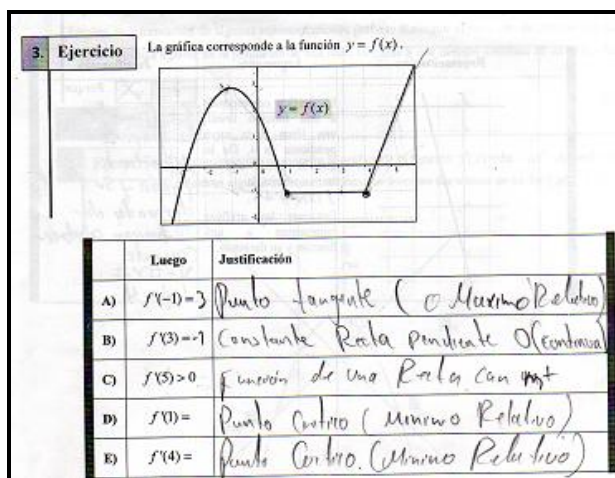 3. Ejercicio La gráfica corresponde a la función y = f(x).
y = f(x)
Luego Justificación
A) f'(-1) = 3 Punto tangente. ( o Maximo Relativo)
B) f'(3) = -1 Constante Recta pendiente 0 (continua)
C) f'(5) > 0 Función de una Recta con m+
D) f'(1) = Punto Critico (Minimo Relativo)
E) f'(4) = Punto Critico. (Minimo Relativo)